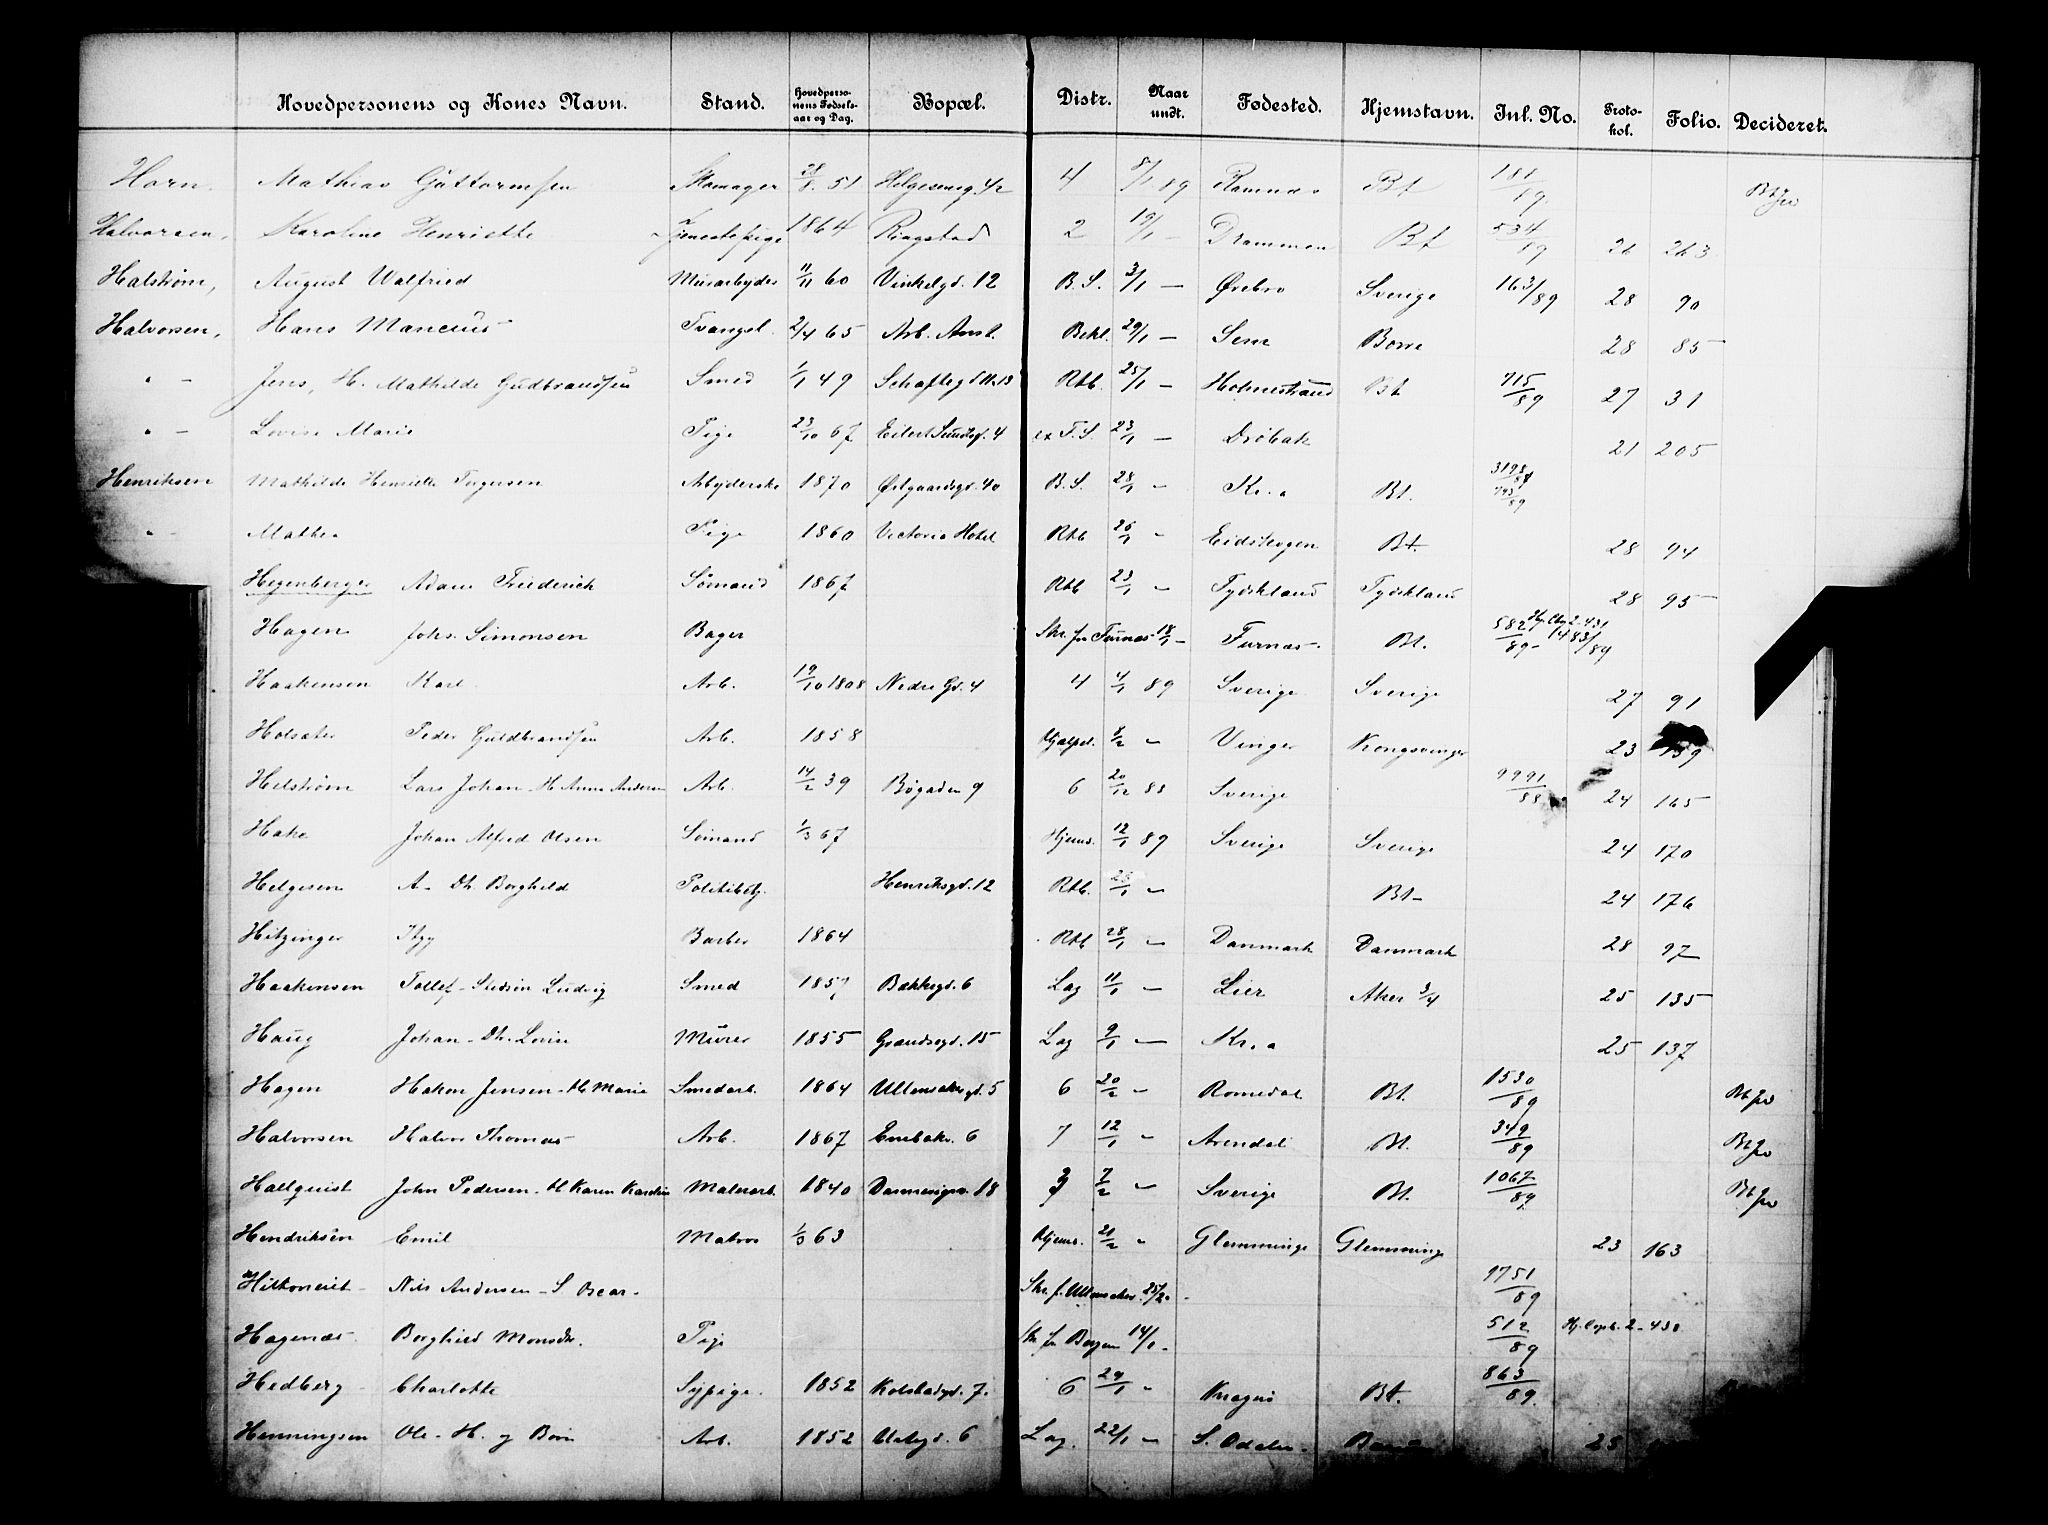 Hovedpersonens og Kones Navn. Stand. Hovedpersonens Fødselsaar og Dag. Bopæl. Distr. Naar undt. Fødested. Hjemstavn. Inl. No. Protokol. Folio. Decideret.
Horn Mathias Guttormsen Skomager 28/8 51 Helgesensg. 42 4 8/1 89 Ramnæs Bt 188/89 Bt
Halvorsen, Karoline Henriette Tjenestepige 1864 Ringstad 2 19/1 — Drammen Bt 534/89 26 263
Halstrøm, August Walfried Murarbejder 11/11 60 Vinkelgd. 12 B. S. 3/1 — Ørebro Sverige 163/89 28 90
Halvorsen, Hans Mancius Tvangsl. 2/4 65 Arb. Anst. Bekl. 29/1 — Sem Borre 28 85
" — Jens, H. Mathilde Gudbrandsen Smed 1/1 49 Rtb. 25/1 — Holmestrand Bt 715/89 27 31
" — Lovise Marie Pige 23/10 67 Eilert Sundtsg. 4 F. S. 23/1 — Drøbak 21 205
Henriksen Mathilde Henriette Torgersen Arbejderske 1870 Østgaardsgd. 40 B. S. 28/1 " Kr.a Bt. 793/89
" — Mathea Pige 1860 Victoria Hotel Rtb 26/1 " Eidskogen Bt. 28 94
Hegenberger Adam Friederich Sømand 1867 Rtb 23/1 " Tydskland Tydskland 28 95
Hagen Johs. Simonsen Bager Skr. fra Furnæs 18/1 — Furnæs Bt. 582/89 1483/89
Haakensen Karl Arb. 19/10 1808 Nedre Gd. 4 4 4/1 89 Sverige Sverige 27 91
Holsæter Peder Guldbrandsen Arb. 1858 Hjælpel. " Vinger Kongsvinger 23 159
Helstrøm Lars Johan — H. Anna Andersen Arb. 14/2 39 Bøgaden 9 6 20/12 88 Sverige 9991/88 24 165
Hake Johan Alfred Olsen Sømand 1/3 67 Hjems. 12/1 89 Sverige Sverige 24 170
Helgesen A— Dt. Borghild Politibetj. Henriksgd. 12 Rtb. 25/1 " Bt— 24 176
Hitzinger Barber 1864 Rtb 28/1 " Danmark Danmark 28 97
Haakensen Tollef — Ludvig Smed 1857 Bakkegd. 6 Lag 11/1 — Lier Aker 3/4 25 135
Haug Johan — Dt. Lovise Murer 1855 Grændsegd. 15 Lag 9/1 — Kr.a 25 137
Hagen Hakon Jensen — H. Marie Smedarb. 1864 Ullensakergd. 5 6 20/2 " Romedal Bt. 1530/89 Bt
Halvorsen Halvor Thomas Arb. 1867 Enebakv. 6 7 12/1 " Arendal Bt. 349/89 Bt
Hallquist John Pedersen — H. Karen Karoline Malerarb. 1840 18 7/2 " Sverige Bt. 1067/89 Bt
Hendriksen Emil Matros 1/3 63 Hjems. 21/2 " Glemminge Glemminge 23 163
Nils Andersen — S. Oscar — Skr. f. Ullensaker 25/2 — 9751/89
Hagenæs Borghild Monsdtr. Pige Skr. fra Bergen 14/1 — 512/89 Hj. Copb. 2 - 430
Hedberg Charlotte Sypige 1852 Kolstadgd. 7. 6 29/1 " Kragerø Bt. 863/89
Henningsen Ole — H. og Børn Arb. 1852 Urtegd. 6 Lag. 22/1 — S. Odalen 25